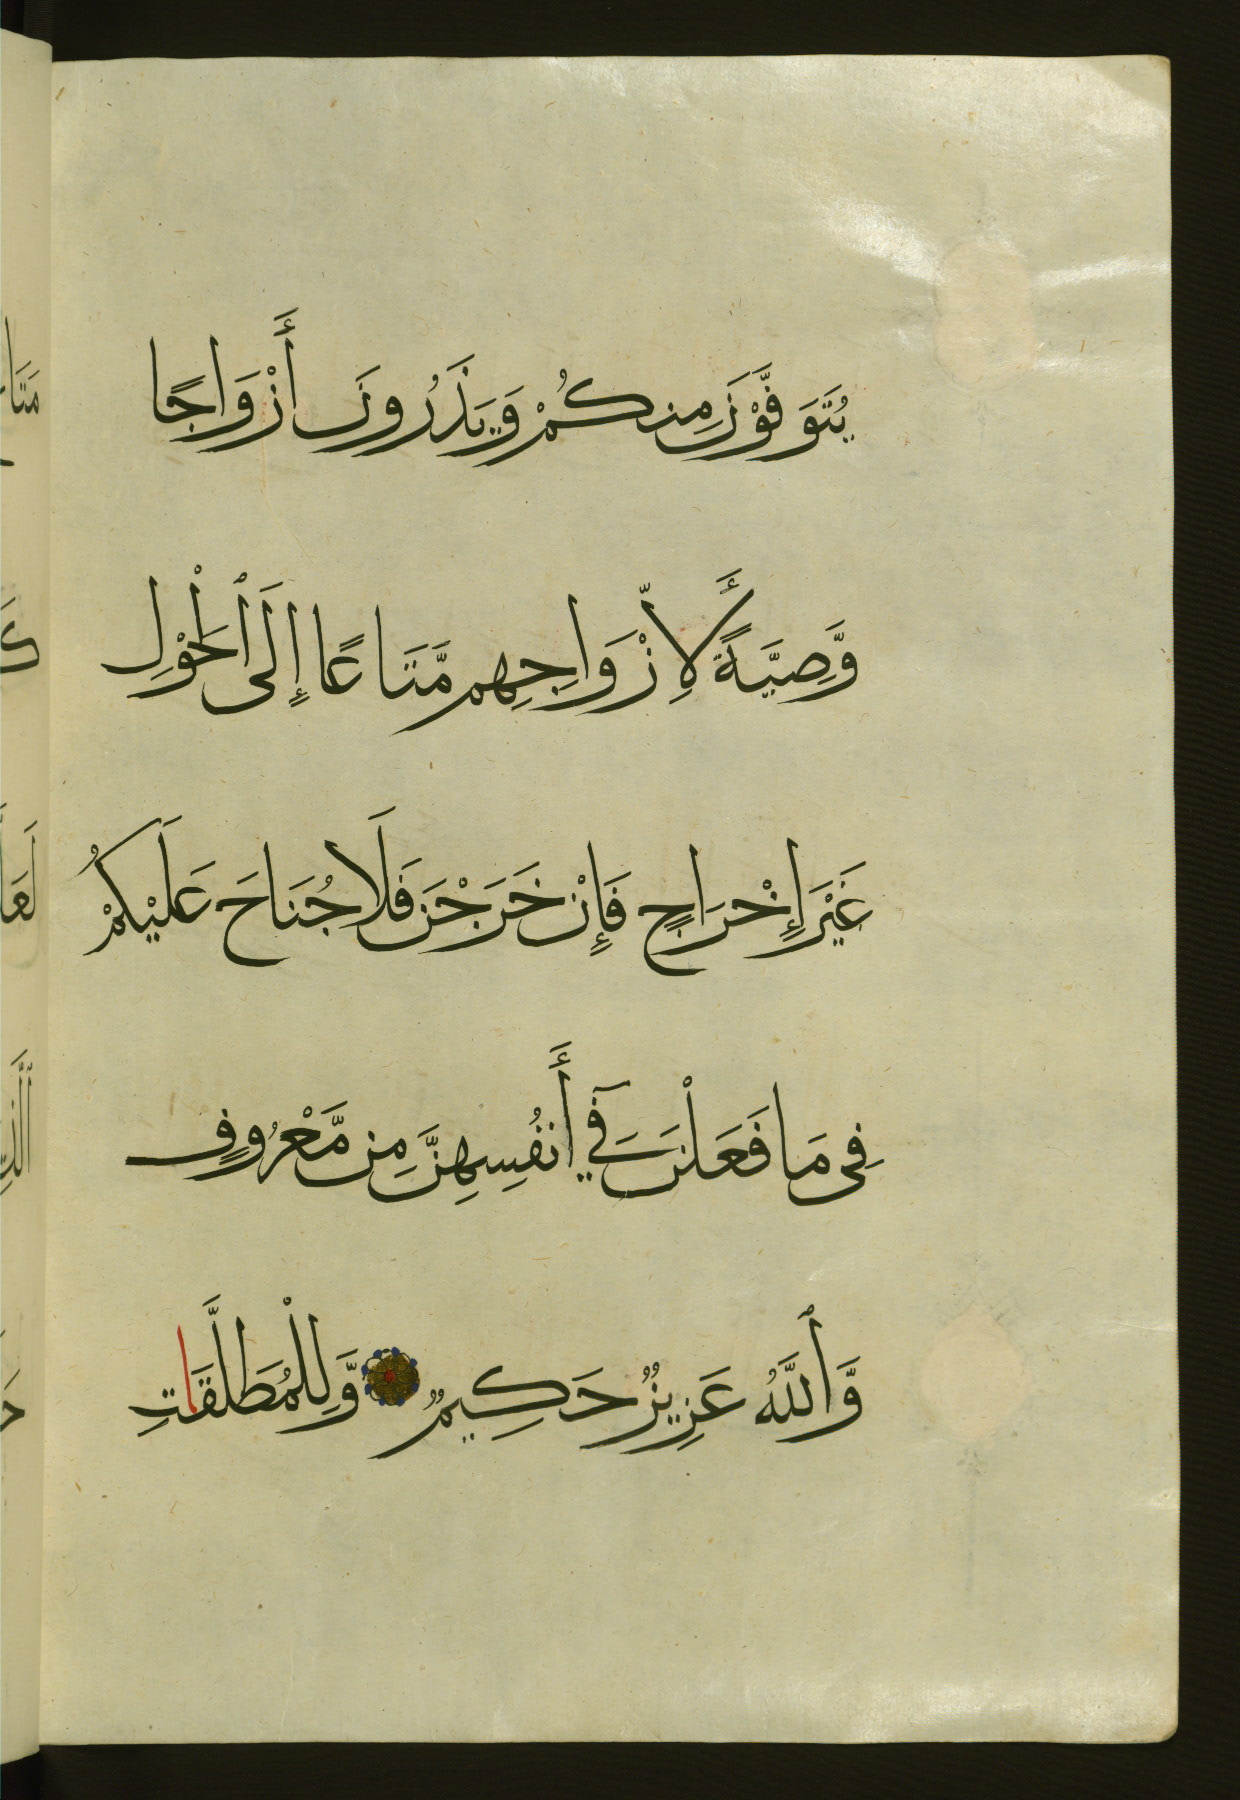 يُتَوَفَّوْنَ مِنكُمْ وَيَذَرُونَ أَزْوَاجًا
وَّصِيَّةً لِّأَزْوَاجِهِم مَّتَاعًا إِلَى ٱلْحَوْلِ
غَيْرَ إِخْرَاجٍ فَإِنْ خَرَجْنَ فَلَا جُنَاحَ عَلَيْكُمْ
فِى مَا فَعَلْنَ فِيٓ أَنفُسِهِنَّ مِن مَّعْرُوفٍ
وَّٱللَّهُ عَزِيزٌ حَكِيمٌ وَّلِلْمُطَلَّقَاتِ